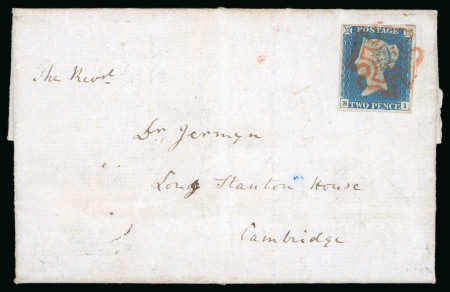 POSTAGE
R I
TWO PENCE
The Revd.
Dr. Jermyn
Long Stanton House
Cambridge